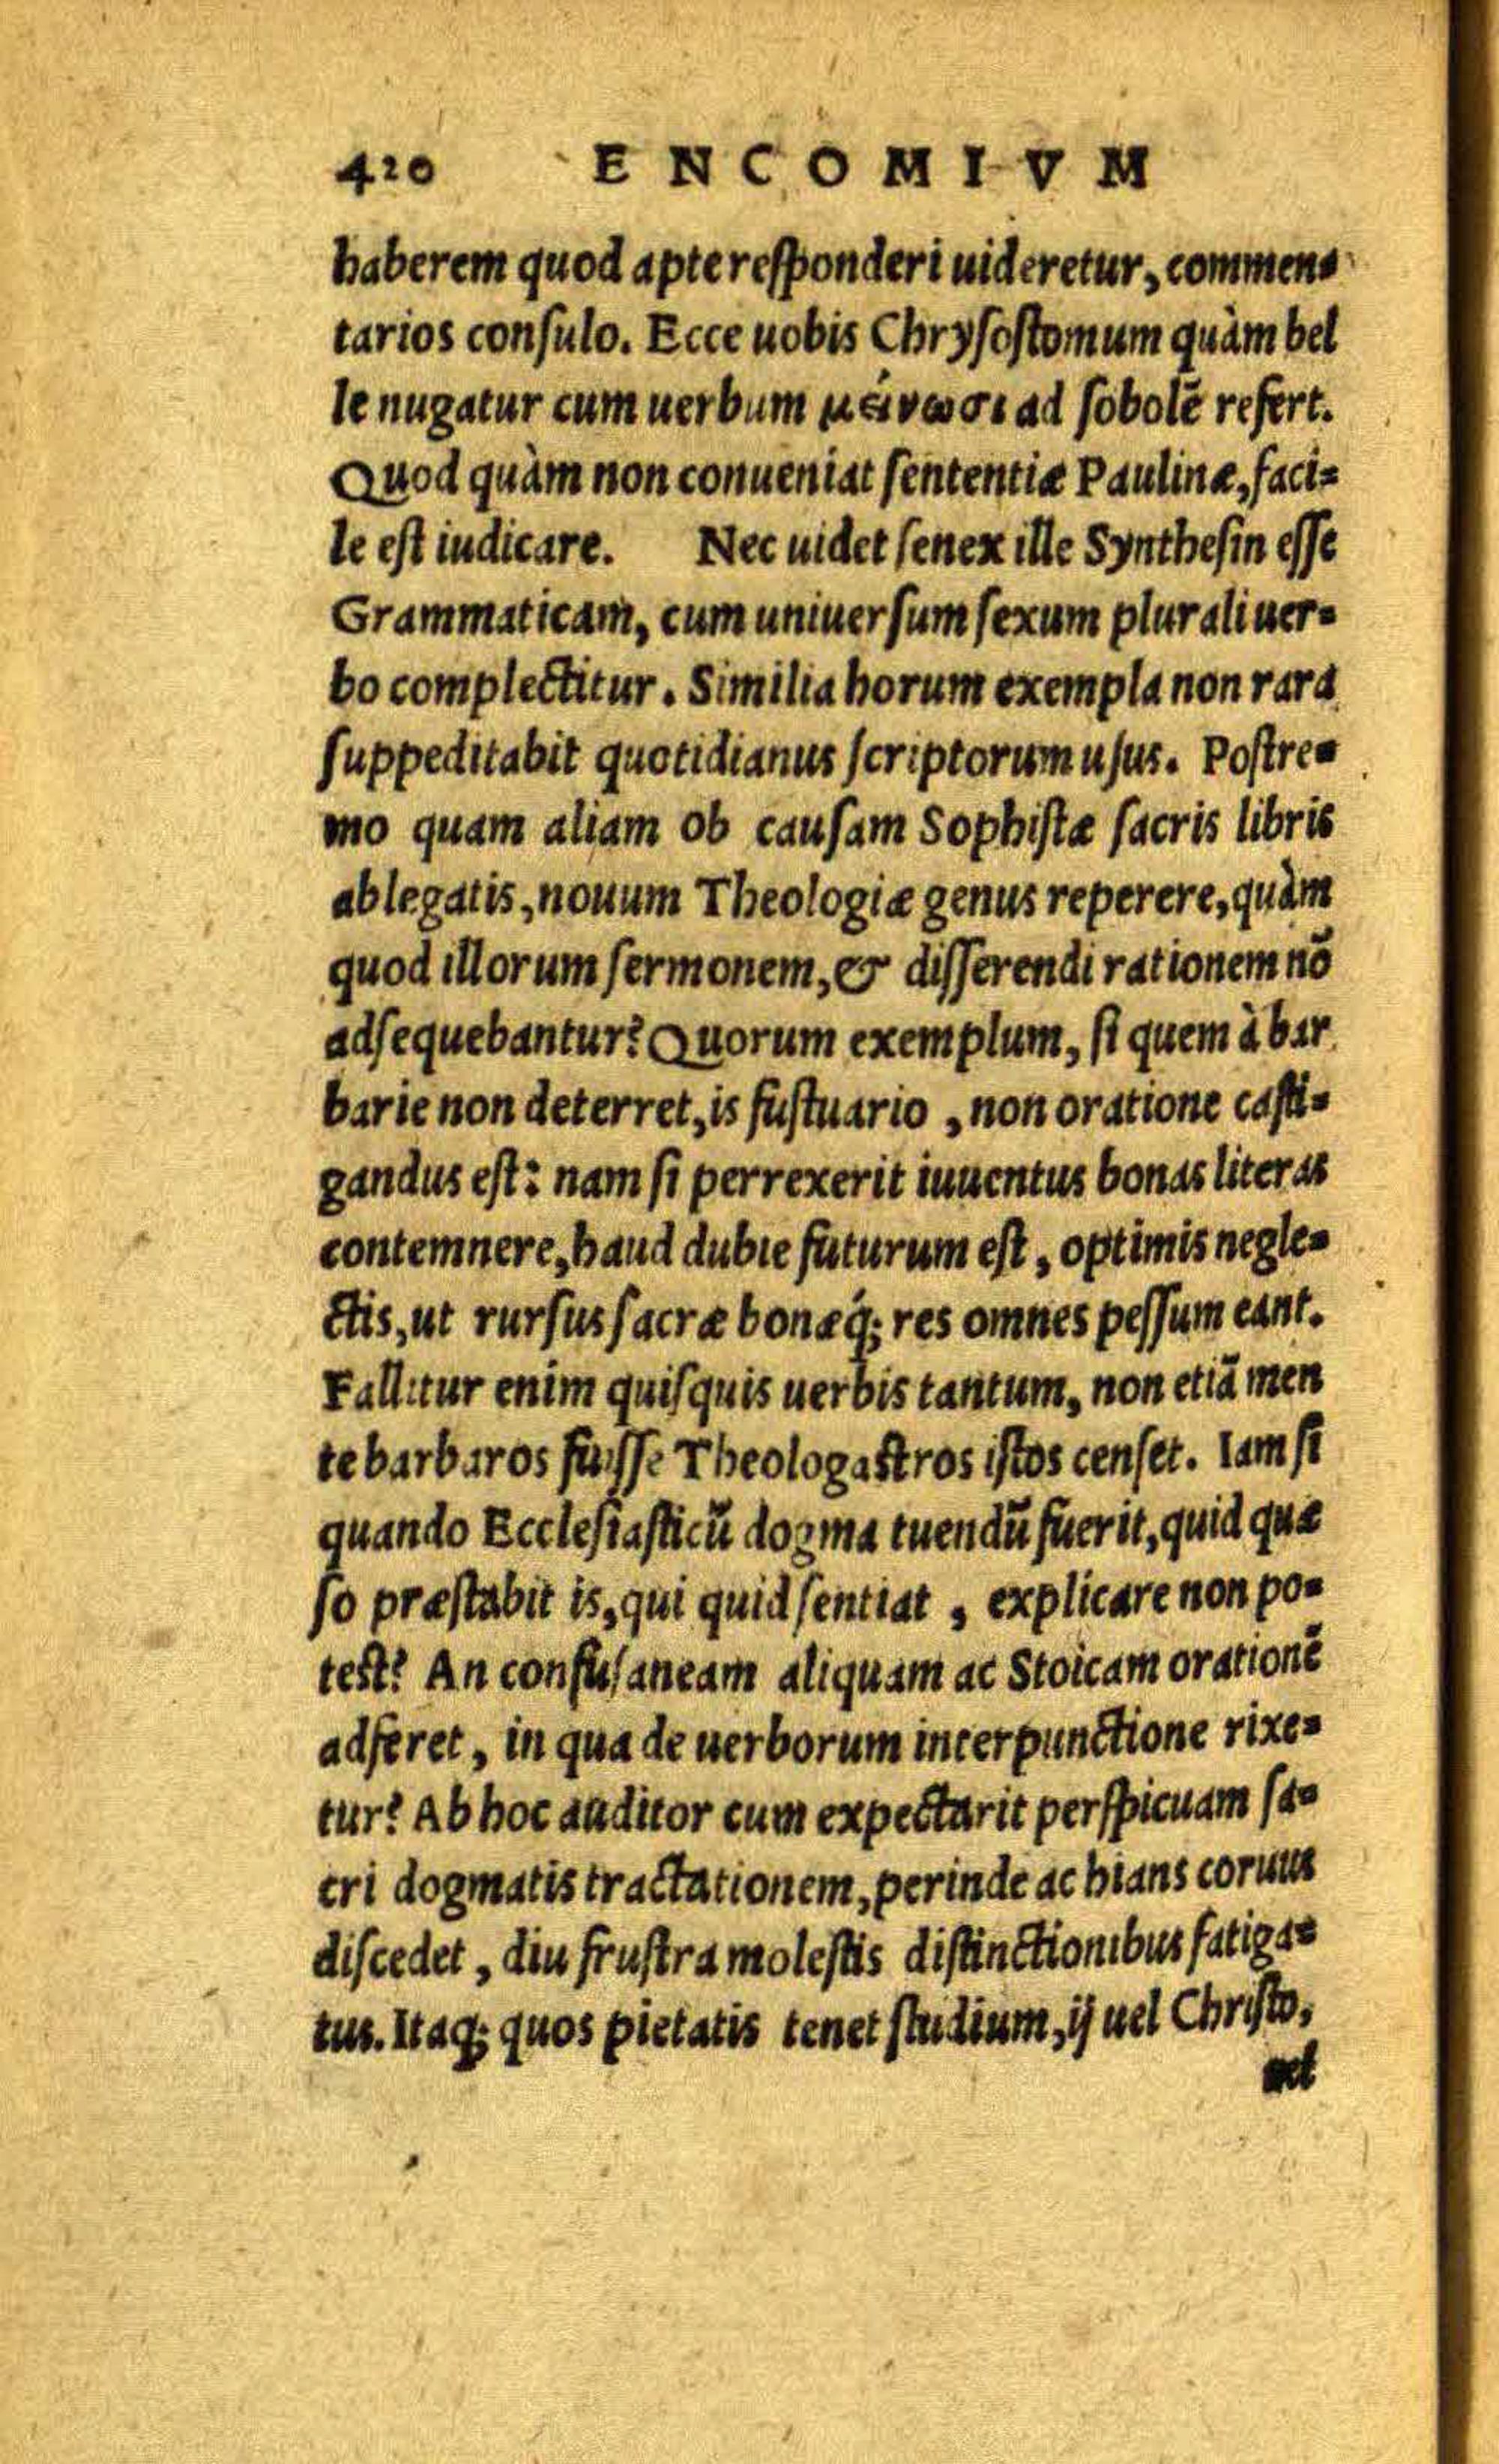 420 ENCOMIVM
haberem quod apte reſponderi uideretur, commen-
tarios conſulo. Ecce uobis Chryſoſtomum quàm bel
le nugatur cum uerbum μείνωσι ad ſobolē refert.
Quod quàm non conueniat ſententiæ Paulinæ, faci-
le eſt iudicare. Nec uidet ſenex ille Syntheſin eſſe
Grammaticam, cum uniuerſum ſexum plurali uer-
bo complectitur. Similia horum exempla non rara
ſuppeditabit quotidianus ſcriptorum uſus. Poſtre-
mo quam aliam ob cauſam Sophiſtæ ſacris libris
ablegatis, nouum Theologiæ genus reperere, quàm
quod illorum ſermonem, & diſſerendi rationem nō
adſequebantur? Quorum exemplum, ſi quem à bar
barie non deterret, is fuſtuario, non oratione caſti-
gandus eſt: nam ſi perrexerit iuuentus bonas literas
contemnere, haud dubie futurum eſt, optimis negle-
ctis, ut rurſus ſacræ bonæq́; res omnes peſſum eant.
Fallitur enim quiſquis uerbis tantum, non etiā men
te barbaros fuiſſe Theologaſtros iſtos cenſet. Iam ſi
quando Eccleſiaſticū dogma tuendū fuerit, quid quæ
ſo præſtabit is, qui quid ſentiat, explicare non po-
teſt? An confuſaneam aliquam ac Stoicam orationē
adferet, in qua de uerborum interpunctione rixe-
tur? Ab hoc auditor cum expectarit perſpicuam ſa-
cri dogmatis tractationem, perinde ac hians coruus
diſcedet, diu fruſtra moleſtis diſtinctionibus fatiga-
tus. Itaq; quos pietatis tenet ſtudium, ij uel Chriſto,
uel